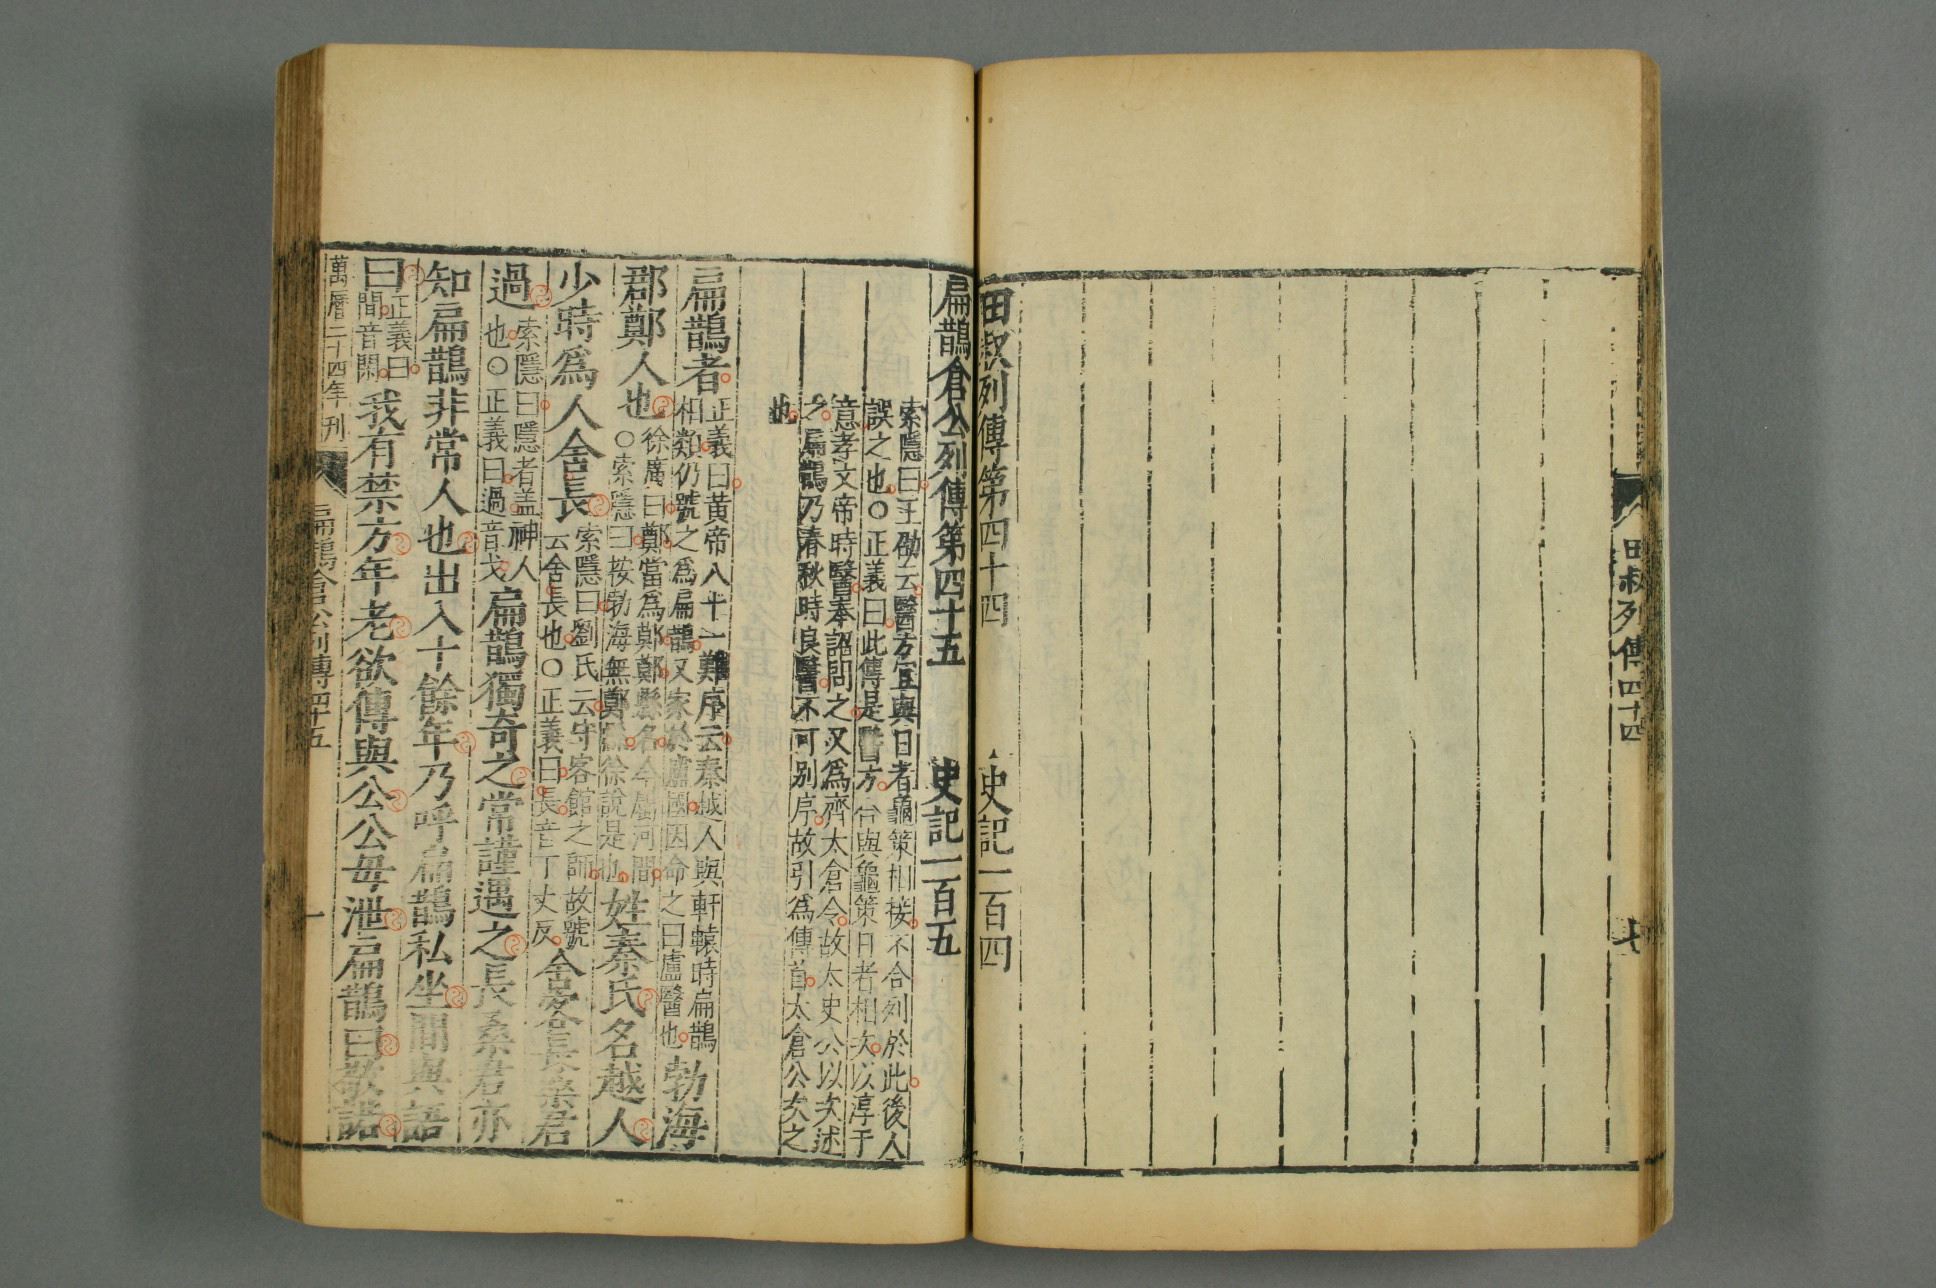 田叔列傳第四十四 史記一百四
田叔列傳四十四
扁鵲倉公列傳第四十五 史記一百五
索隱曰王劭云醫方宜與日者龜策相接不合列於此後人
誤之也○正義曰此傳是醫方合與龜策日者相次以淳于
意孝文帝時醫奉詔問之又爲齊太倉令故太史公以次述
之扁鵲乃春秋時良醫不可別序故引爲傳首太倉公次之
也
扁鵲者
正義曰黃帝八十一難序云秦越人與軒轅時扁鵲
相類仍號之爲扁鵲又家於盧國因命之曰盧醫也
勃海
郡鄭人也
徐廣曰鄭當爲鄚鄚縣名今屬河間
○索隱曰按勃海無鄭縣徐說是也
姓秦氏名越人
少時爲人舍長
索隱曰劉氏云守客館之師故號
云舍長也○正義曰長音丁丈反
舍客長桑君
過
索隱曰隱者蓋神人
也○正義曰過音戈
扁鵲獨奇之常謹遇之長桑君亦
知扁鵲非常人也出入十餘年乃呼扁鵲私坐間與語
曰
正義曰
間音閑
我有禁方年老欲傳與公公毋泄扁鵲曰敬諾
萬曆二十四年刊
扁鵲倉公列傳四十五
一